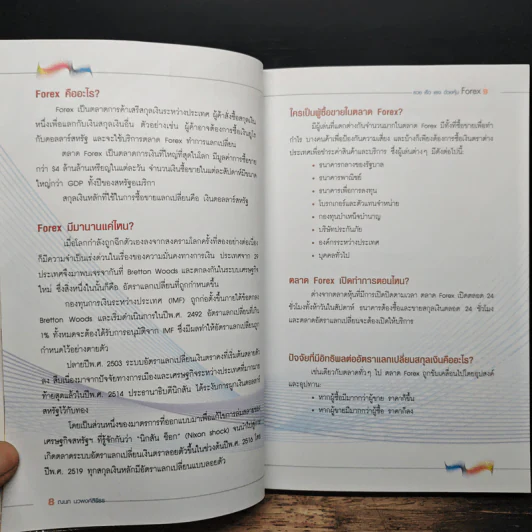 Forex คืออะไร?
Forex เป็นตลาดการค้าเสรีสกุลเงินระหว่างประเทศ ผู้ค้าสั่งซื้อสกุลเงิน
หนึ่งเพื่อแลกกับเงินสกุลเงินอื่น ตัวอย่างเช่น ผู้ค้าอาจต้องการซื้อเงินยูโร
กับดอลลาร์สหรัฐ และจะใช้บริการตลาด Forex ทำการแลกเปลี่ยน
ตลาด Forex เป็นตลาดการเงินที่ใหญ่ที่สุดในโลก มีมูลค่าการซื้อขาย
กว่า 54 ล้านล้านเหรียญในแต่ละวัน จำนวนเงินซื้อขายในแต่ละสัปดาห์มีขนาด
ใหญ่กว่า GDP ทั้งปีของสหรัฐอเมริกา
สกุลเงินหลักที่ใช้ในการซื้อขายแลกเปลี่ยนคือ เงินดอลลาร์สหรัฐ
Forex มีมานานแค่ไหน?
เมื่อโลกกำลังถูกฉีกตัวเองลงจากสงครามโลกครั้งที่สองอย่างต่อเนื่อง
ก็มีความจำเป็นเร่งด่วนในเรื่องของความมั่นคงทางการเงิน ประเทศจาก
ประเทศจึงมาพบเจรจากันที่ Bretton Woods และตกลงกันในระบบเศรษฐกิจ
ใหม่ ซึ่งสิ่งหนึ่งในนั้นก็คือ อัตราแลกเปลี่ยนที่ถูกกำหนดขึ้น
กองทุนการเงินระหว่างประเทศ (IMF) ถูกก่อตั้งขึ้นภายใต้ข้อตกลง
Bretton Woods และเริ่มดำเนินการในปีพ.ศ. 2492 อัตราแลกเปลี่ยนที่เกิน
1% ทั้งหมดจะต้องได้รับการอนุมัติจาก IMF ซึ่งมีผลทำให้อัตราแลกเปลี่ยนถูก
กำหนดไว้อย่างตายตัว
ปลายปีพ.ศ. 2503 ระบบอัตราแลกเปลี่ยนเงินตราคงที่เริ่มต้นสลายตัว
ลง สืบเนื่องมาจากปัจจัยทางการเมืองและเศรษฐกิจระหว่างประเทศที่มากมาย
ท้ายสุดแล้วในปีพ.ศ. 2514 ประธานาธิบดีนิกสัน ได้ระงับการผูกเงินดอลลาร์
สหรัฐไว้กับทอง
โดยเป็นส่วนหนึ่งของมาตรการที่ออกแบบมาเพื่อแก้ไขการ
เศรษฐกิจสหรัฐฯ ที่รู้จักกันว่า "นิกสัน ช็อก" (Nixon shock)
เกิดตลาดระบบอัตราแลกเปลี่ยนเงินตราลอยตัวขึ้นในช่วงต้นปีพ.ศ. 2516
ปีพ.ศ. 2519 ทุกสกุลเงินหลักมีอัตราแลกเปลี่ยนแบบลอยตัว
8
Forex
ใครเป็นผู้ซื้อขายในตลาด Forex?
มีผู้เล่นที่แตกต่างกันจำนวนมากในตลาด Forex มีทั้งที่ซื้อขายเพื่อทำ
กำไร บางคนค้าเพื่อป้องกันความเสี่ยง และบ้างก็เพียงต้องการซื้อเงินตราต่าง
ประเทศเพื่อชำระค่าสินค้าและบริการ ซึ่งผู้เล่นต่างๆ มีดังต่อไปนี้
• ธนาคารกลางของรัฐบาล
• ธนาคารพาณิชย์
• ธนาคารเพื่อการลงทุน
• โบรกเกอร์และตัวแทนจำหน่าย
• กองทุนบำเหน็จบำนาญ
• บริษัทประกันภัย
• องค์กรระหว่างประเทศ
• บุคคลทั่วไป
ตลาด Forex เปิดทำการตอนไหน?
ต่างจากตลาดหุ้นที่มีการเปิดปิดตามเวลา ตลาด Forex เปิดตลอด 24
ชั่วโมงทั้งห้าวันในสัปดาห์ ธนาคารต้องซื้อและขายสกุลเงินตลอด 24 ชั่วโมง
และตลาดอัตราแลกเปลี่ยนจะต้องเปิดให้บริการ
ปัจจัยที่มีอิทธิพลต่ออัตราแลกเปลี่ยนสกุลเงินคืออะไร?
เช่นเดียวกับตลาดทั่วๆ ไป ตลาด Forex ถูกขับเคลื่อนไปโดยอุปสงค์
และอุปทาน
• หากผู้ซื้อมีมากกว่าผู้ขาย ราคาก็ขึ้น
• หากผู้ขายมีมากกว่าผู้ซื้อ ราคาก็ลง